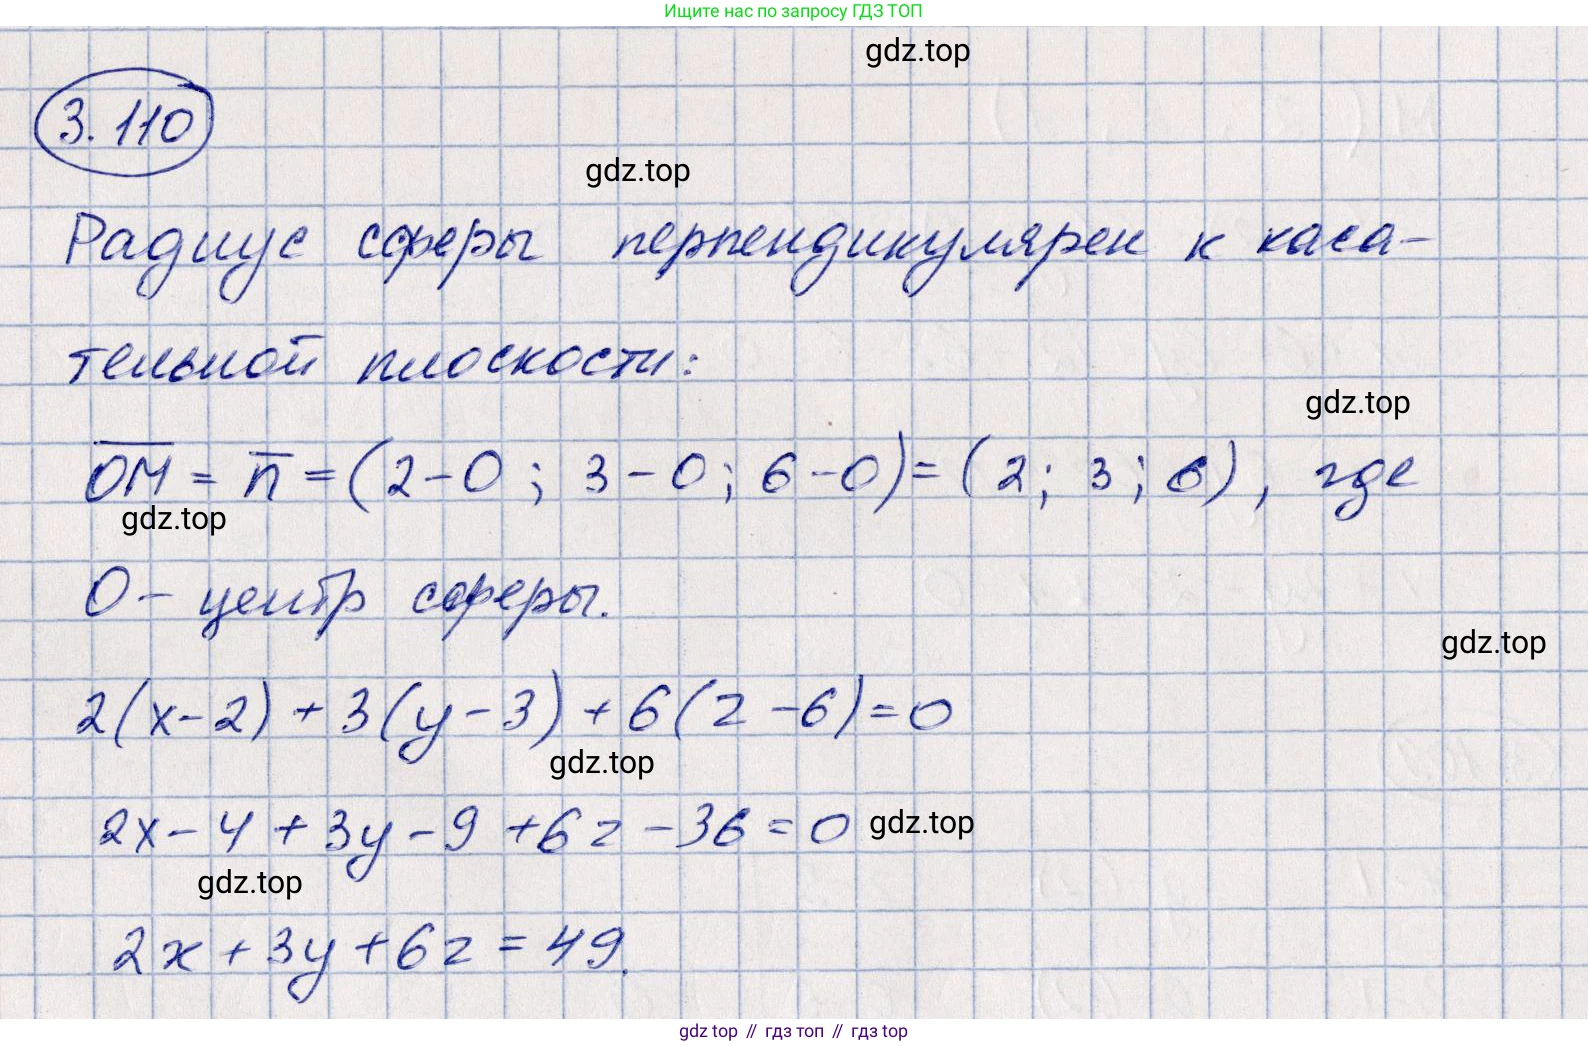 Ищите нас по запросу ГДЗ ТОП
gdz.top
3.110
gdz.top
Радиус сферы перпендикулярен к каса-
тельной плоскости:
gdz.top
OM = n = (2-0; 3-0; 6-0) = (2; 3; 6), где
gdz.top
O - центр сферы.
gdz.top
2(x-2) + 3(y-3) + 6(z-6) = 0
gdz.top
2x - 4 + 3y - 9 + 6z - 36 = 0
gdz.top
gdz.top
2x + 3y + 6z = 49.
gdz top // гдз топ // гдз top